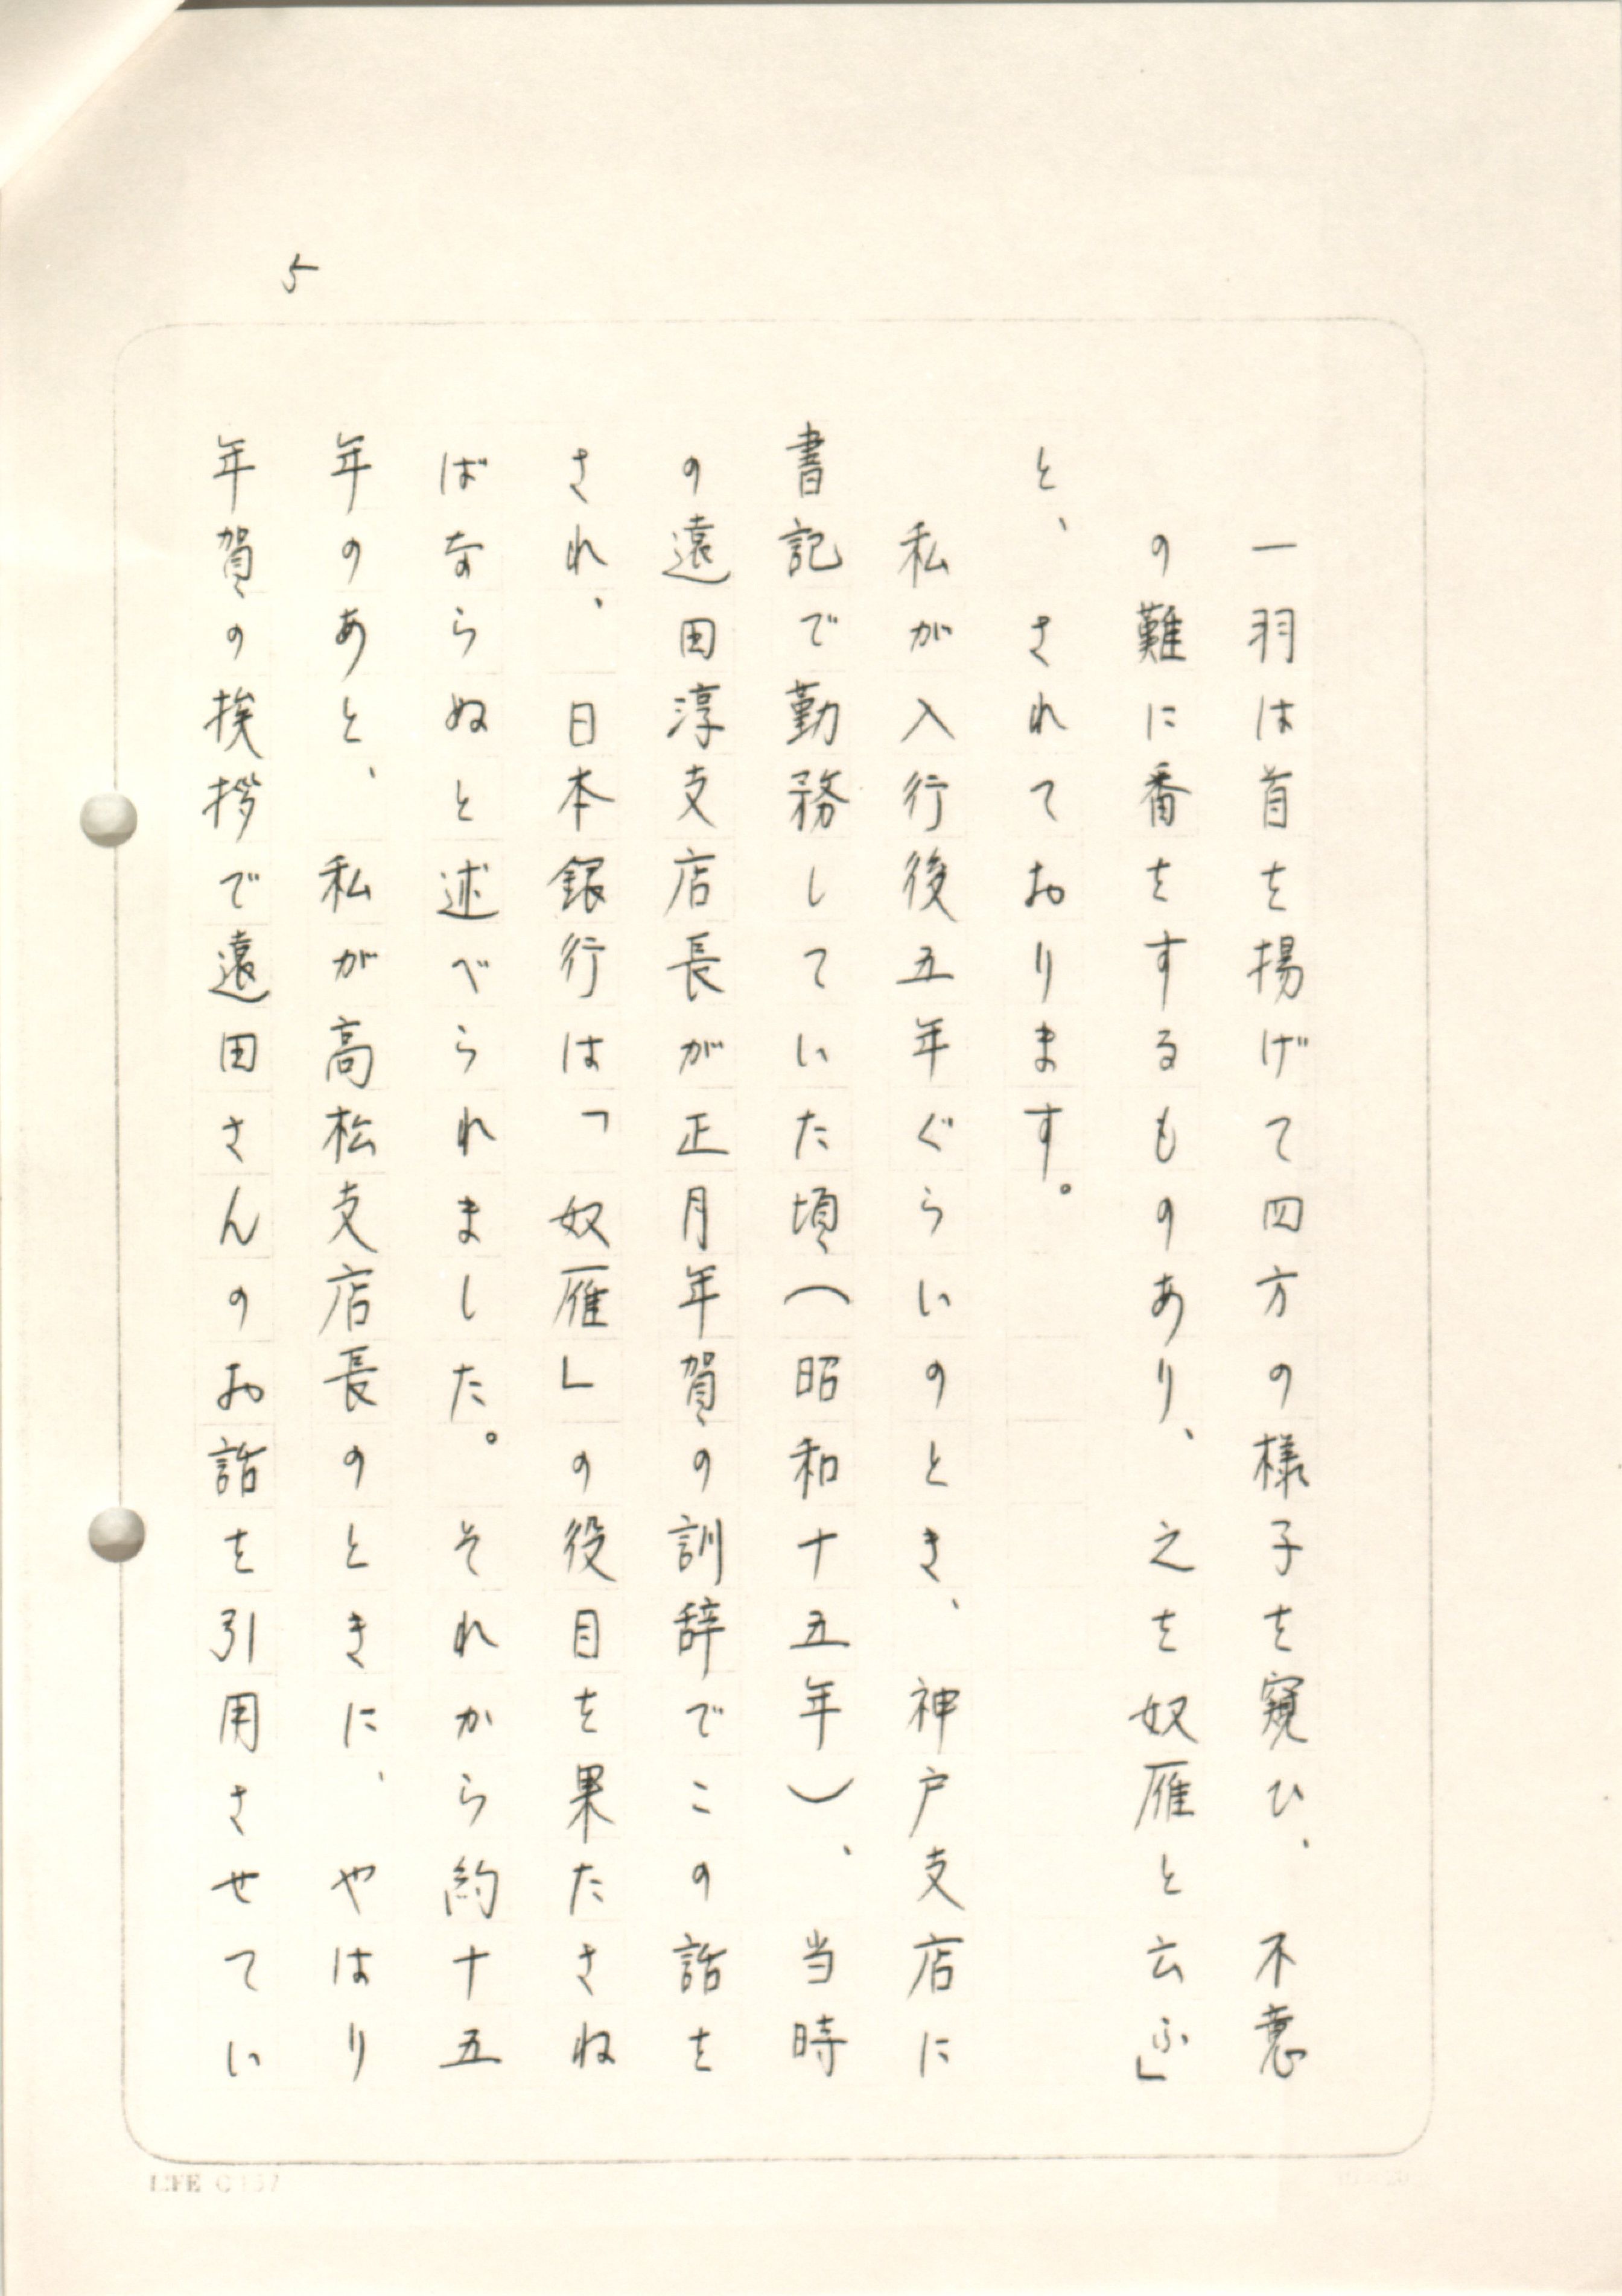 5
一羽は首を揚げて四方の様子を窺ひ、不意
の難に番をするものあり、之を奴雁と云ふ」
と、されております。
私が入行後五年ぐらいのとき、神戸支店に
書記で勤務していた頃(昭和十五年)、当時
の遠田淳支店長が正月年賀の訓辞でこの話を
され、日本銀行は「奴雁」の役目を果たさね
ばならぬと述べられました。それから約十五
年のあと、私が高松支店長のときに、やはり
年賀の挨拶で遠田さんのお話を引用させてい
LIFE C157